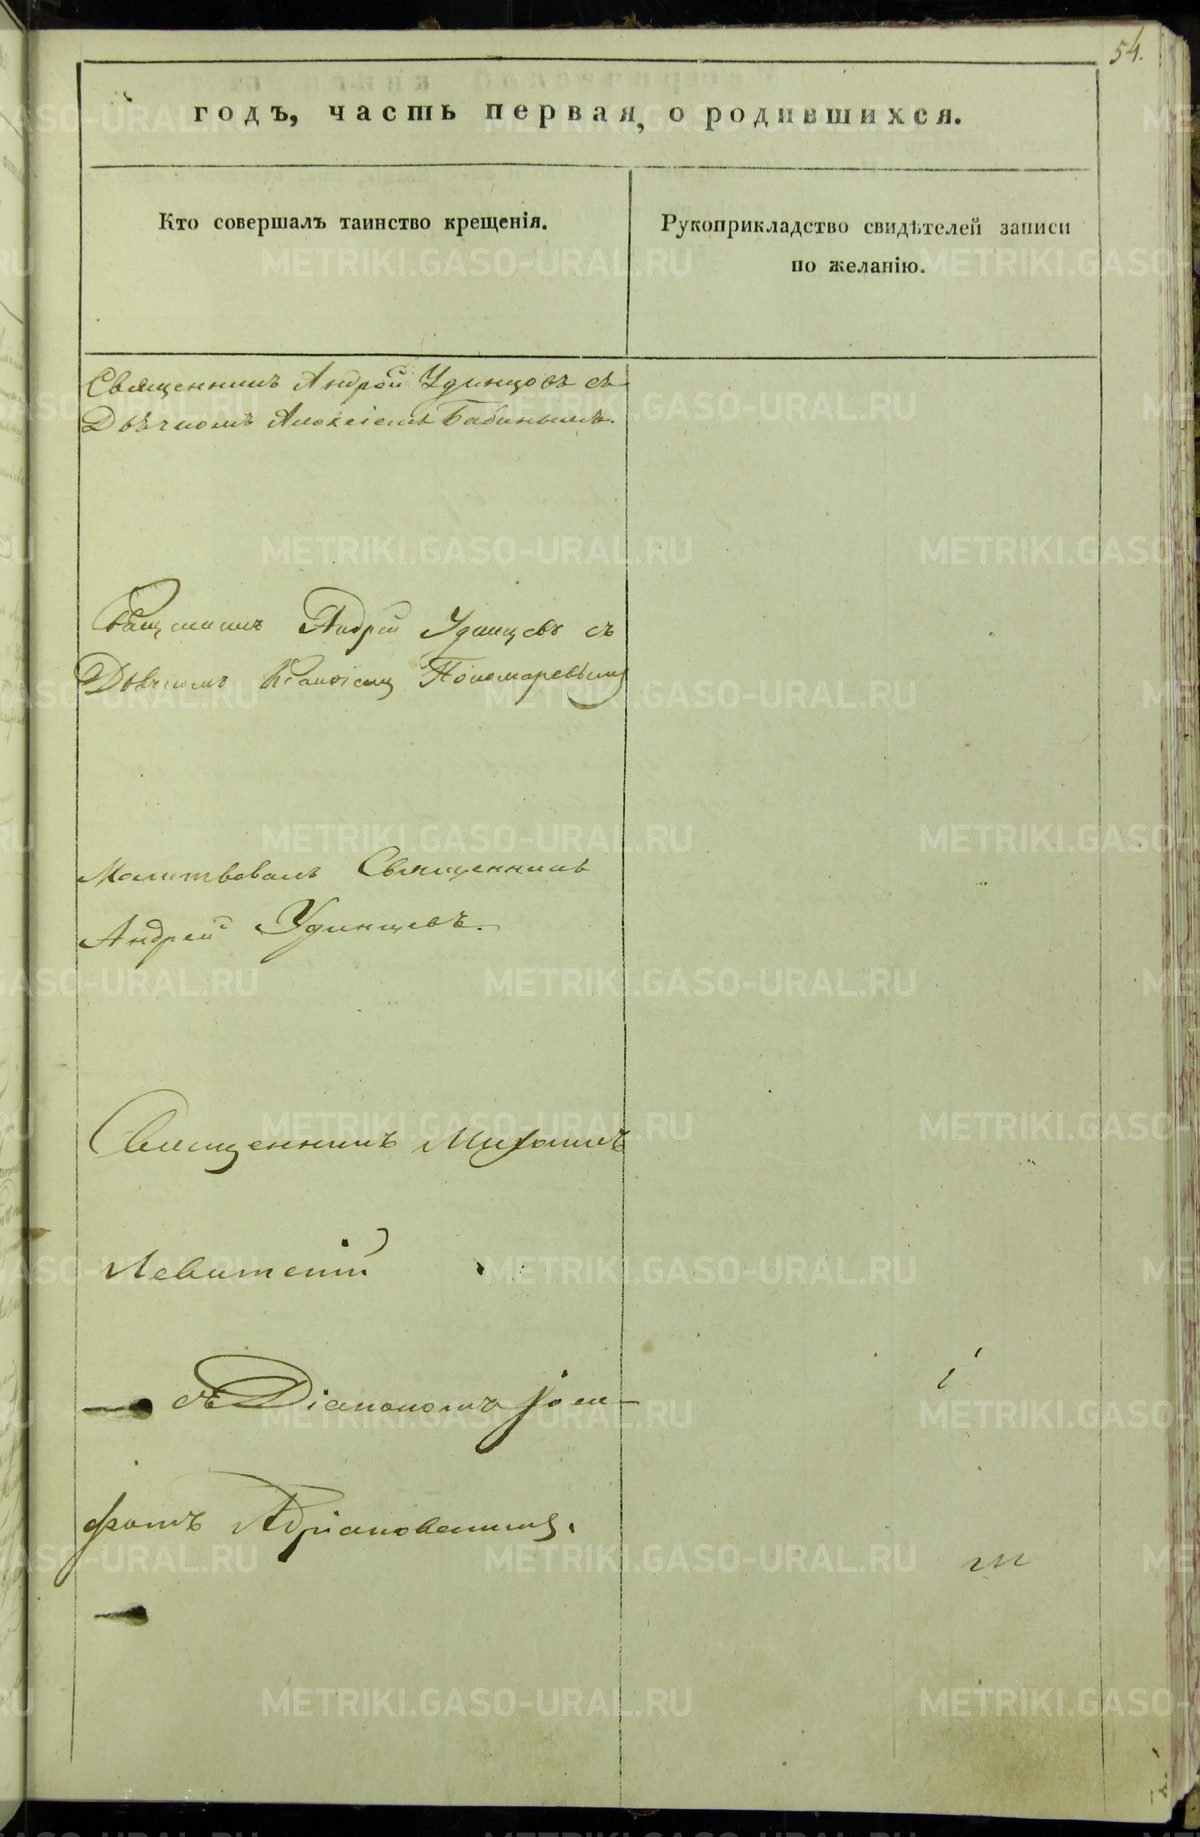 54.
годъ, часть первая, о родившихся.
Кто совершалъ таинство крещенія.
Рукоприкладство свидѣтелей записи
по желанію.
Священникъ Андрей Удинцовъ съ
Дьячкомъ Алексіемъ Бабинымъ.
Священникъ Андрей Удинцовъ съ
Дьячкомъ Пономаревымъ
Молитвовалъ Священникъ
Андрей Удинцевъ.
Священникъ Михаилъ
Левитскій
съ Діакономъ Іоси-
фомъ Адріановскимъ.
METRIKI.GASO-URAL.RU